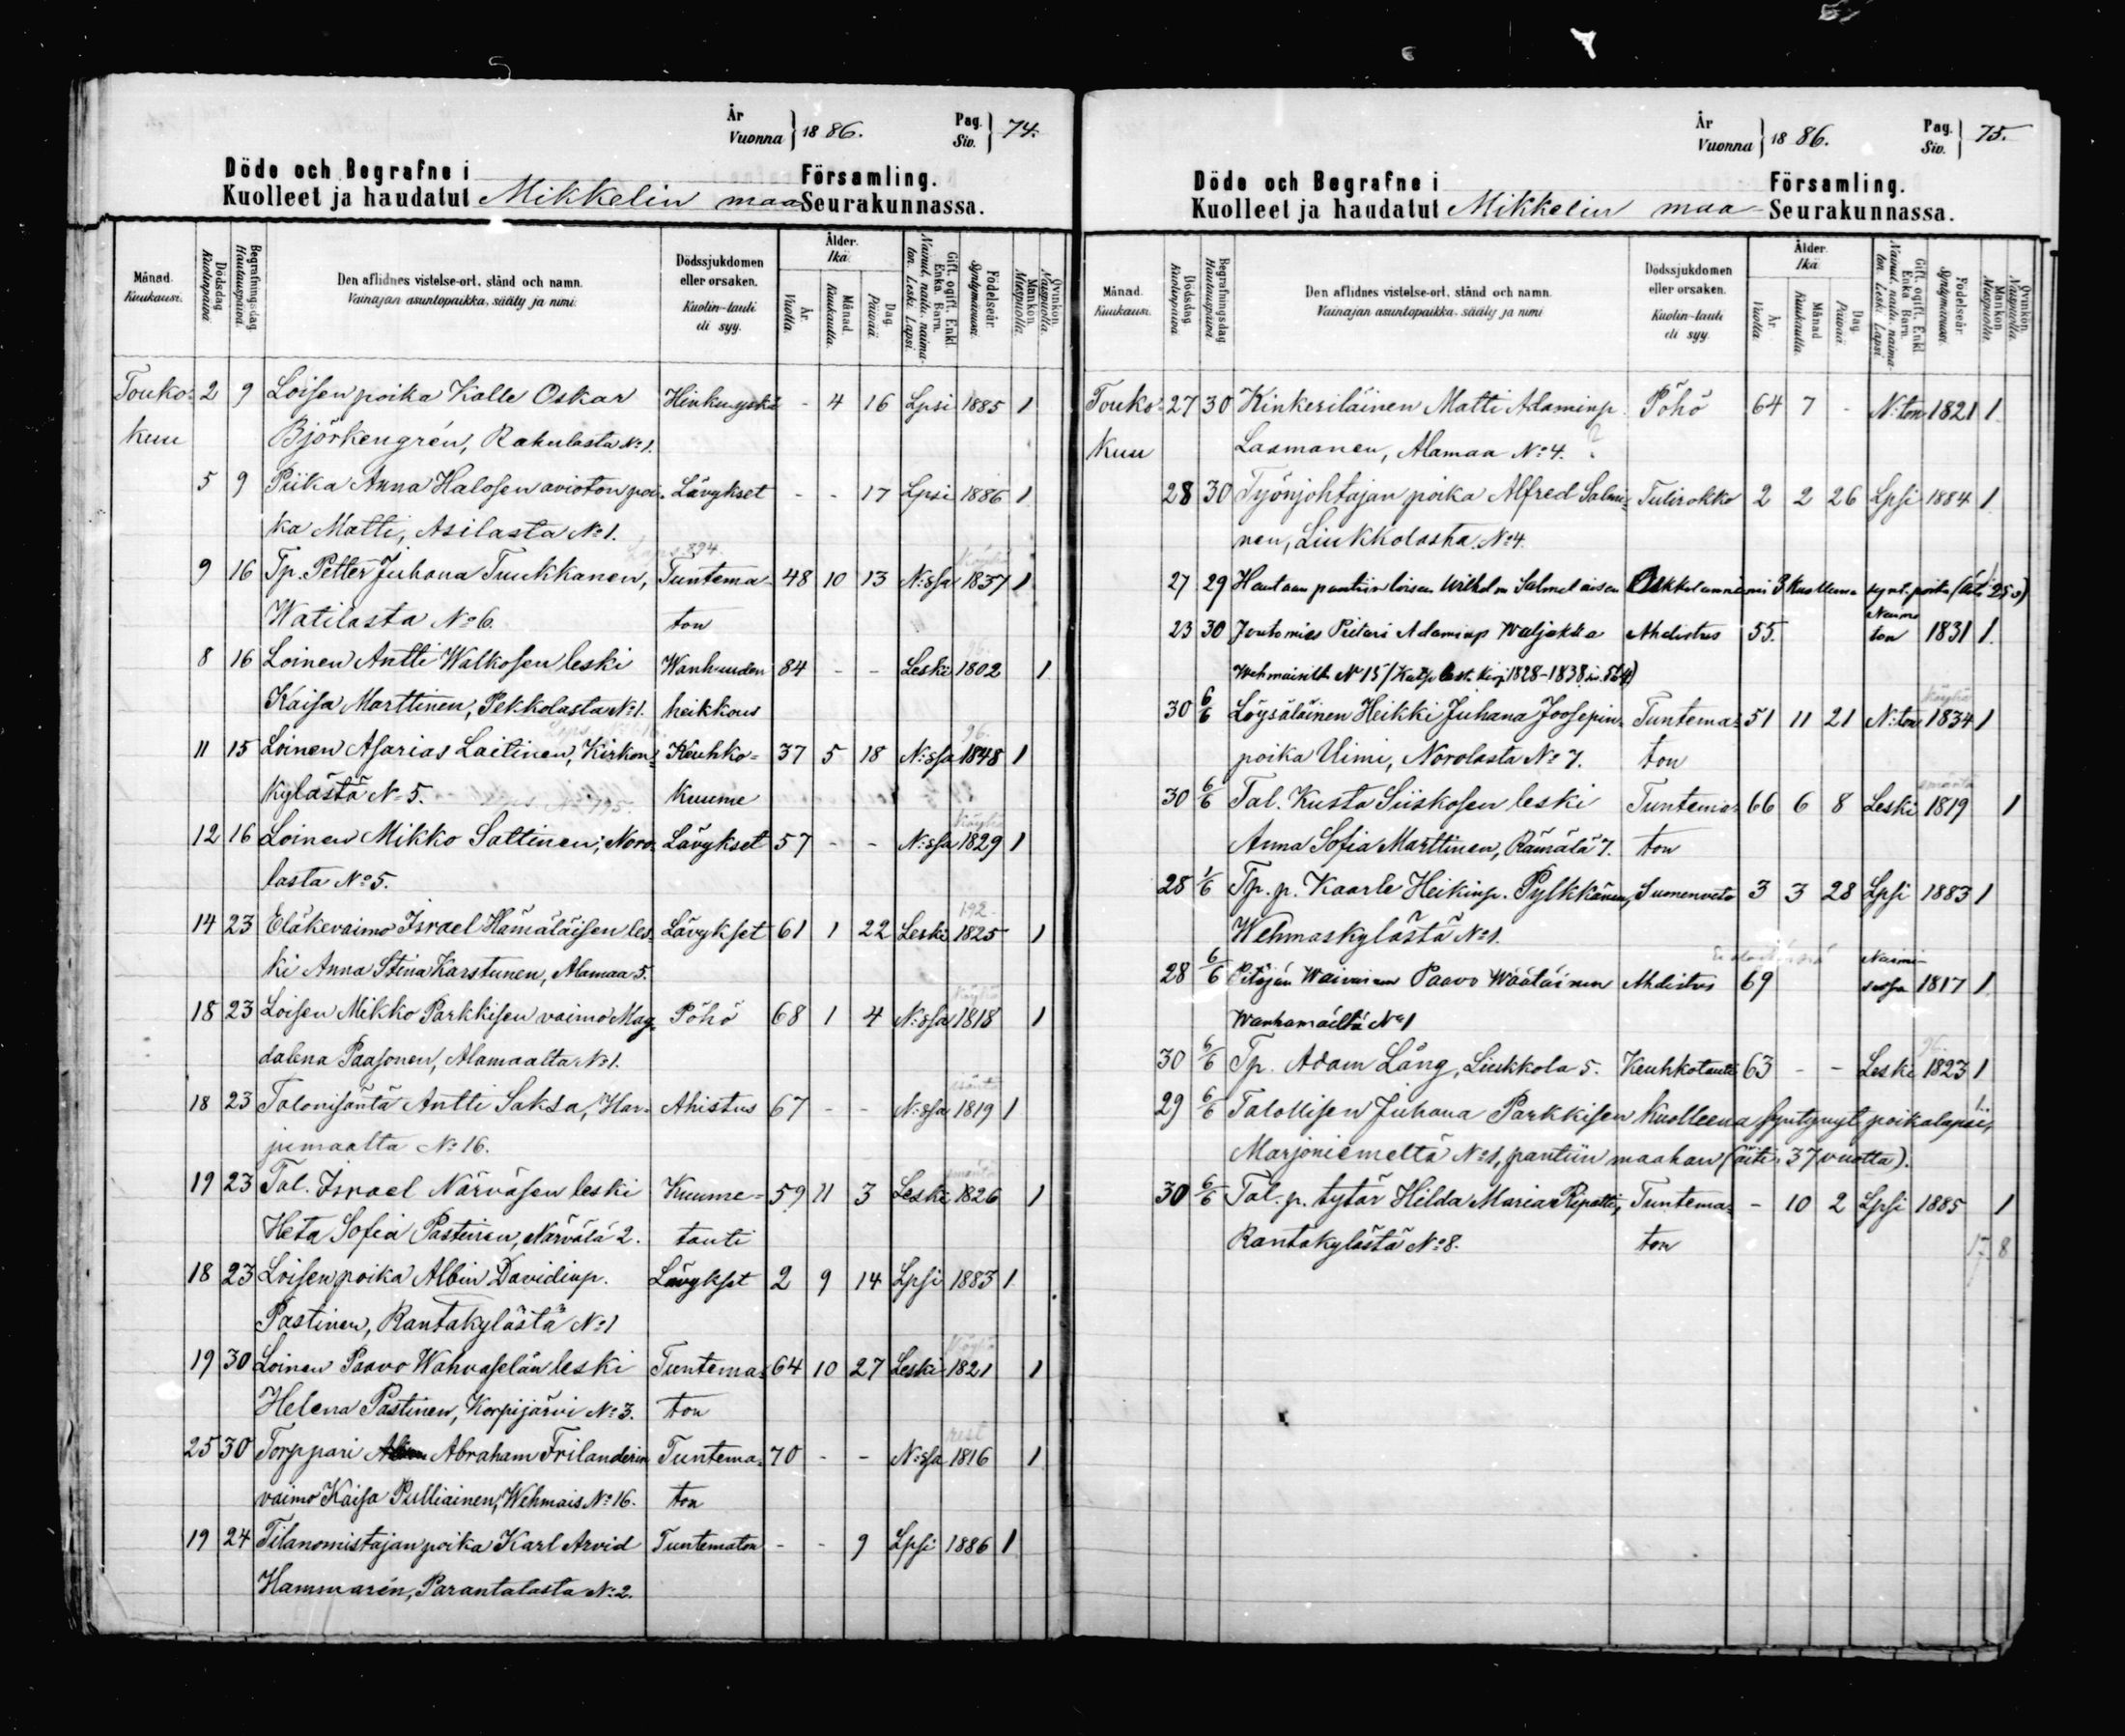 År
Vuonna } 1886. Pag. Siv. } 74.
Döde och Begrafne i Församling.
Kuolleet ja haudatut Mikkelin maa Seurakunnassa.
Månad. Kuukausi.
Dödsdag. Kuolinpäivä.
Begrafningsdag. Hautauspäivä.
Den aflidnes vistelse-ort, stånd och namn.
Vainajan asuntopaikka, sääty ja nimi.
Dödssjukdomen eller orsaken.
Kuolin-tauti eli syy.
Ålder. Ikä.
År. Vuotta.
Månad. Kuukautta.
Dag. Päivää.
Gift, ogift, Enkl. Enka. Barn.
Nainut, naitu, naimaton. Leski. Lapsi.
Födelseår. Syntymävuosi.
Mankön. Miespuolia.
Qvinkön. Naispuolia.
Touko= 2 9 Loisen poika Kalle Oskar Hinkuyskä - 4 16 Lpsi 1885 1
kuu Björkengrén, Rahulasta No 1.
5 9 Piika Anna Halosen avioton poi- Lävykset - - 17 Lpsi 1886 1
ka Matti, Asilasta No 1.
9 16 Tp. Petter Juhana Tuukkanen, Tuntema- 48 10 13 N:ssa 1837 1
Watilasta No 6. ton
8 16 Loinen Antti Walkosen leski Wanhuuden 84 - - Leski 1802 1
Kaisa Marttinen, Pekkolasta No 1. heikkous
11 15 Loinen Asarias Laitinen, Kirkon= Keuhko= 37 5 18 N:ssa 1848 1
kylästä No 5. kuume
12 16 Loinen Mikko Sattinen, Noro- Lävykset 57 - - N:ssa 1829 1
lasta No 5.
14 23 Eläkevaimo Israel Hämäläisen les- Lävykset 61 1 22 Leski 1825 1
ki Anna Stina Karstunen, Alamaa 5.
18 23 Loisen Mikko Parkkisen vaimo Mag- Pöhö 68 1 4 N:ssa 1818 1
dalena Paasonen, Alamaalta No 1.
18 23 Talonisäntä Antti Saksa, Har- Ahistus 67 - - N:ssa 1819 1
jumaalta No 16.
19 23 Tal. Israel Närväsen leski Kuume= 59 11 3 Leski 1826 1
Heta Sofia Pastinen, Närvälä 2. tauti
18 23 Loisen poika Albin Davidinp. Lävykset 2 9 14 Lpsi 1883 1
Pastinen, Rantakylästä No 1
19 30 Loinen Paavo Wahvaselän leski Tuntema= 64 10 27 Leski 1821 1
Helena Pastinen, Korpijärvi No 3. ton
25 30 Torppari Abraham Frilanderin Tuntema= 70 - - N:ssa 1816 1
vaimo Kaisa Pulliainen, Wehmais No 16. ton
19 24 Tilanomistajan poika Karl Arvid Tuntematon - - 9 Lpsi 1886 1
Hammarén, Parantalasta No 2.
År
Vuonna } 1886. Pag. Siv. } 75.
Döde och Begrafne i Församling.
Kuolleet ja haudatut Mikkelin maa- Seurakunnassa.
Månad. Kuukausi.
Dödsdag. Kuolinpäivä.
Begrafningsdag. Hautauspäivä.
Den aflidnes vistelse-ort, stånd och namn.
Vainajan asuntopaikka, sääty ja nimi
Dödssjukdomen eller orsaken.
Kuolin-tauti eli syy.
Ålder. Ikä.
År. Vuotta.
Månad. Kuukautta.
Dag. Päivää.
Gift, ogift, Enkl. Enka. Barn.
Nainut, naitu, naimaton. Leski. Lapsi.
Födelseår. Syntymävuosi.
Mankön. Miespuolia.
Qvinkön. Naispuolia.
Touko- 27 30 Kinkeriläinen Matti Adaminp. Pöhö 64 7 - N:ton 1821 1
kuu Laamanen, Alamaa No 4.
28 30 Työnjohtajan poika Alfred Salmi= Tulirokko 2 2 26 Lpsi 1884 1
nen, Liukkolasta No 4.
27 29 Hautaan pantiin loisen Wilhelm Salmelaisen kuolleena synt. poika
23 30 Joutomies Pietari Adaminp Waljakka Ahdistus 55. Naimaton 1831 1
Wehmaisilta No 15 1828-1838
30 6/6 Löysäläinen Heikki Juhana Joosepin- Tuntema= 51 11 21 N:ton 1834 1
poika Uimi, Norolasta No 7. ton
30 6/6 Tal. Kusta Siiskosen leski Tuntema= 66 6 8 Leski 1819 1
Anna Sofia Marttinen, Rämälä 7. ton
28 1/6 Tp. p. Kaarle Heikinp. Pylkkänen, Suonenveto 3 3 28 Lpsi 1883 1
Wehmaskylästä No 1.
28 6/6 Pitäjän Waivainen Paavo Wäätäinen Ahdistus 69 Naimisissa 1817 1
Wanhamäeltä No 1
30 6/6 Tp. Adam Lång, Liukkola 5. Keuhkotauti 63 - - Leski 1823 1
29 6/6 Talollisen Juhana Parkkisen kuolleena syntynyt poikalapsi,
Marjoniemeltä No 1, pantiin maahan (äiti 37 vuotta).
30 6/6 Tal. p. tytär Hilda Maria Ripatti, Tuntema= - 10 2 Lpsi 1885 1
Rantakylästä No 8. ton
17 8